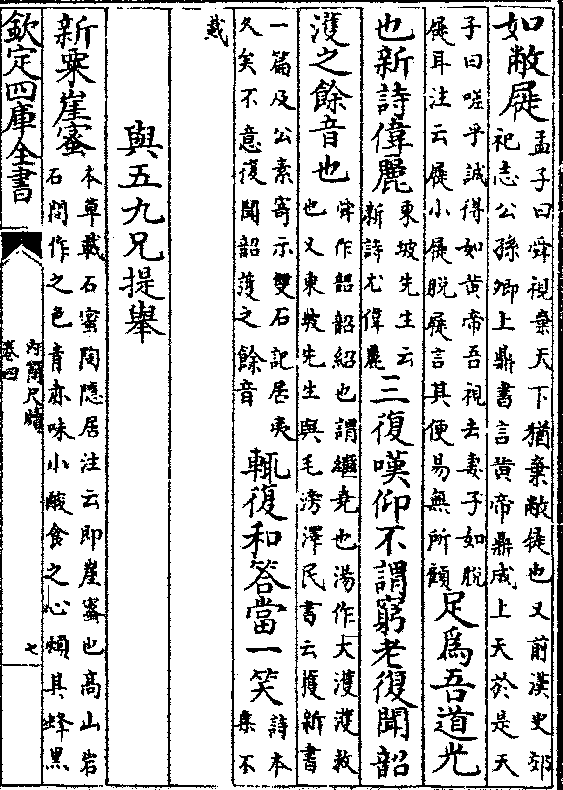 如敝屣孟子曰舜視棄天下猶棄敝屣也又前漢史郊
祀志公孫卿上鼎書言黄帝鼎成上天於是天
子曰嗟乎誠得如黄帝吾視去妻子如脫
屣耳注云屣小屣脫屣言其便易無所顧足為吾道光
也新詩偉麗東坡先生云
新詩尤偉麗三復嘆仰不謂窮老復聞韶
濩之餘音也舜作韶韶紹也謂繼堯也湯作大濩濩救
也又東坡先生與毛滂澤民書云獲新書
一篇及公素寄示雙石記居夷
久矣不意復聞韶濩之餘音輒復和答當一笑詩本
集不
載
與五九兄提舉
新棗崖蜜本草載石蜜陶隱居注云即崖蜜也高山岩
石間作之色青赤味小酸食之心煩其蜂黑
欽定四庫全書
内簡尺牘
卷四
七